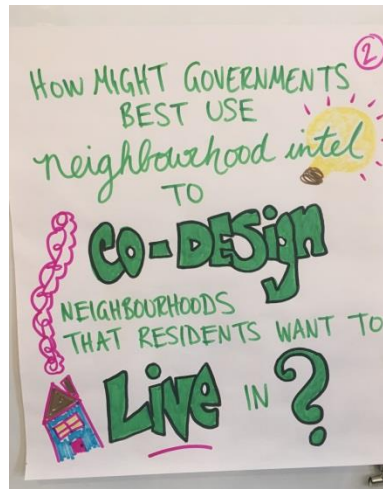 2
HOW MIGHT GOVERNMENTS
BEST USE
neighbourhood intel
TO
CO-DESign
NEIGHBOURHOODS
THAT RESIDENTS WANT TO
Live IN ?